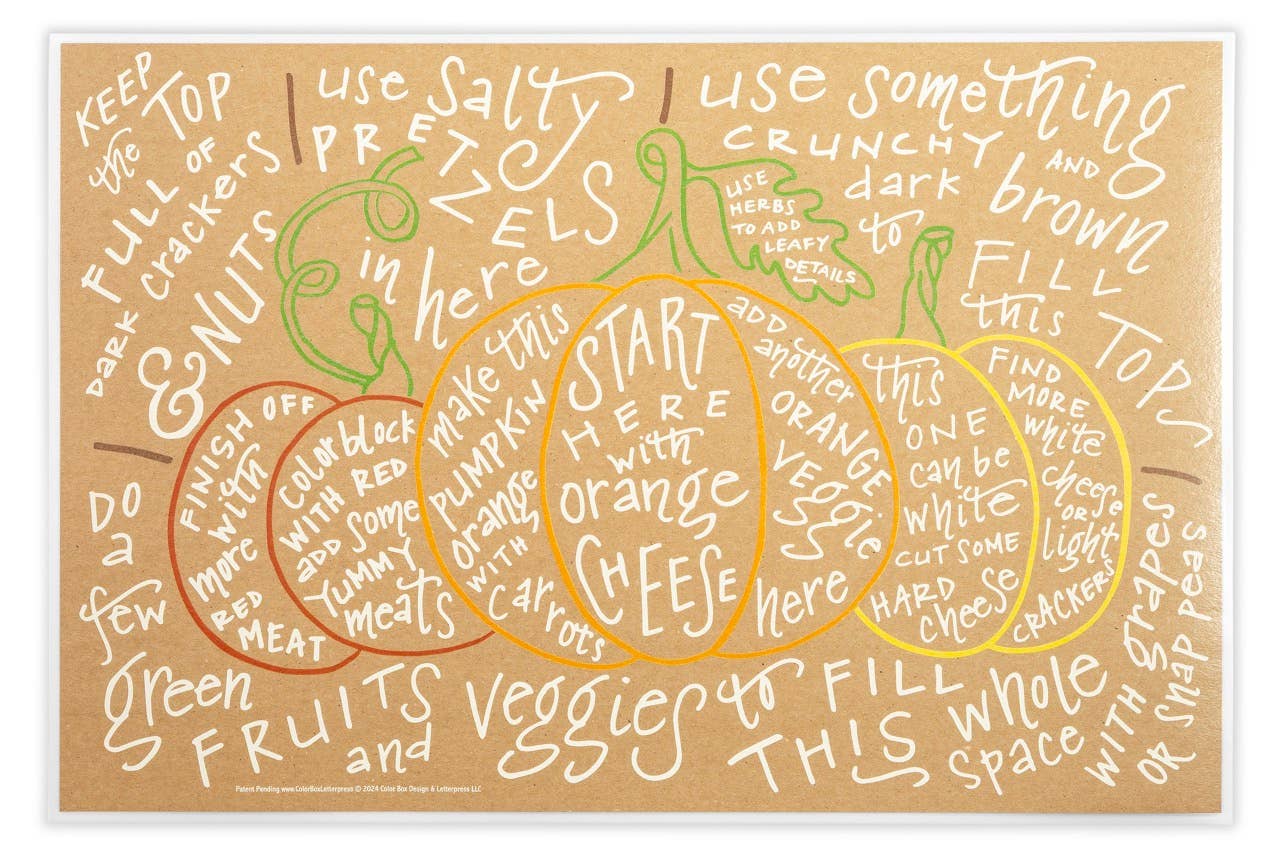 KEEP
the TOP
FULL OF
DARK crackers
& NUTS
use salty
PRETZELS
in here
use something
CRUNCHY AND
dark to brown
FILL
this TOPS
USE
HERBS
TO ADD
LEAFY
DETAILS
FINISH OFF
with
more
RED
MEAT
color block
WITH RED
ADD some
YUMMY
meats
make this
PUMPKIN
orange
WITH
carrots
START
HERE
with
orange
CHEESE
ADD
another
ORANGE
veggie
here
this
ONE
can be
white
CUT SOME
HARD
cheese
FIND
MORE
white
cheese
OR
light
CRACKERS
DO
a
few
green
FRUITS
and
veggies to FILL
THIS whole
space
WITH grapes
OR SNAP PEAS
Patent Pending www.ColorBoxLetterpress © 2024 Color Box Design & Letterpress LLC